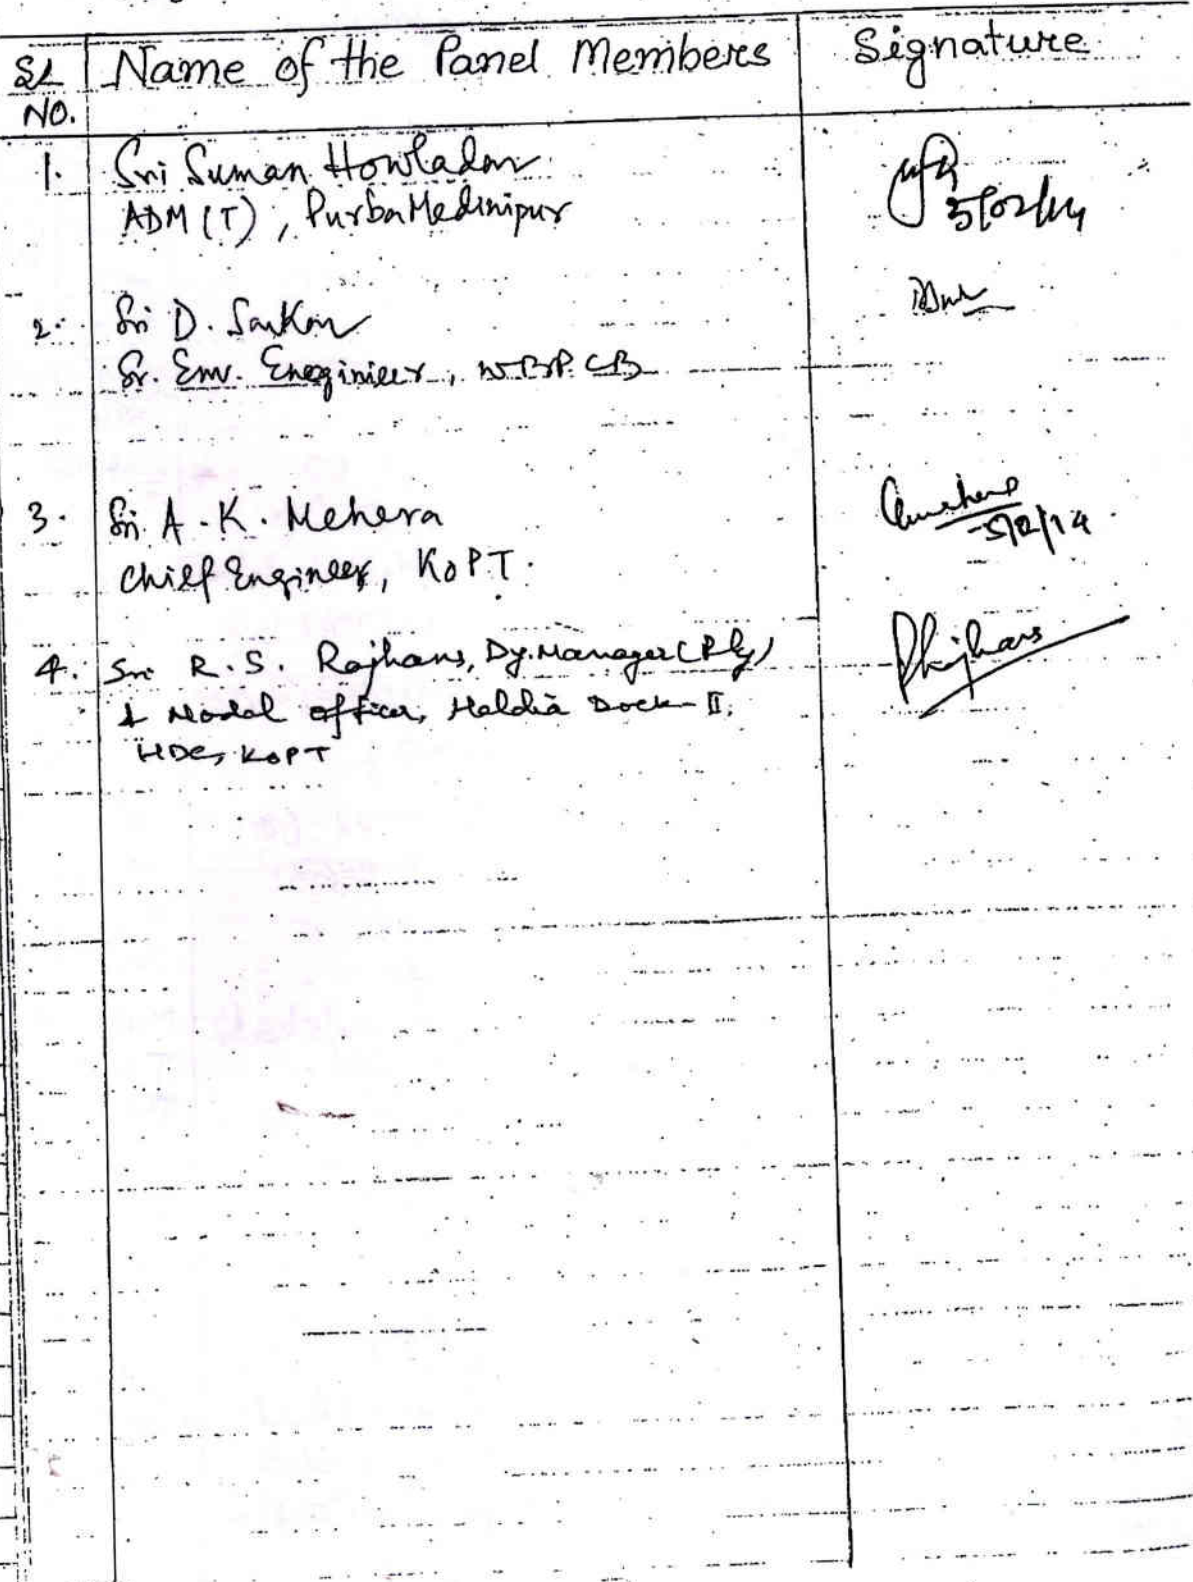 SL NO. Name of the Panel Members Signature
1. Sri Suman Howladar
ADM (T), Purba Medinipur
5/02/14
2. Sri D. Sarkar
Sr. Env. Eneginieer, WBPCB
3. Sri A. K. Mehera
Chief Engineer, KoPT.
5/2/14
4. Sri R. S. Rajhans, Dy. Manager (Rly)
& Nodal Officer, Haldia Dock-II,
HDC, KoPT
Rajhans